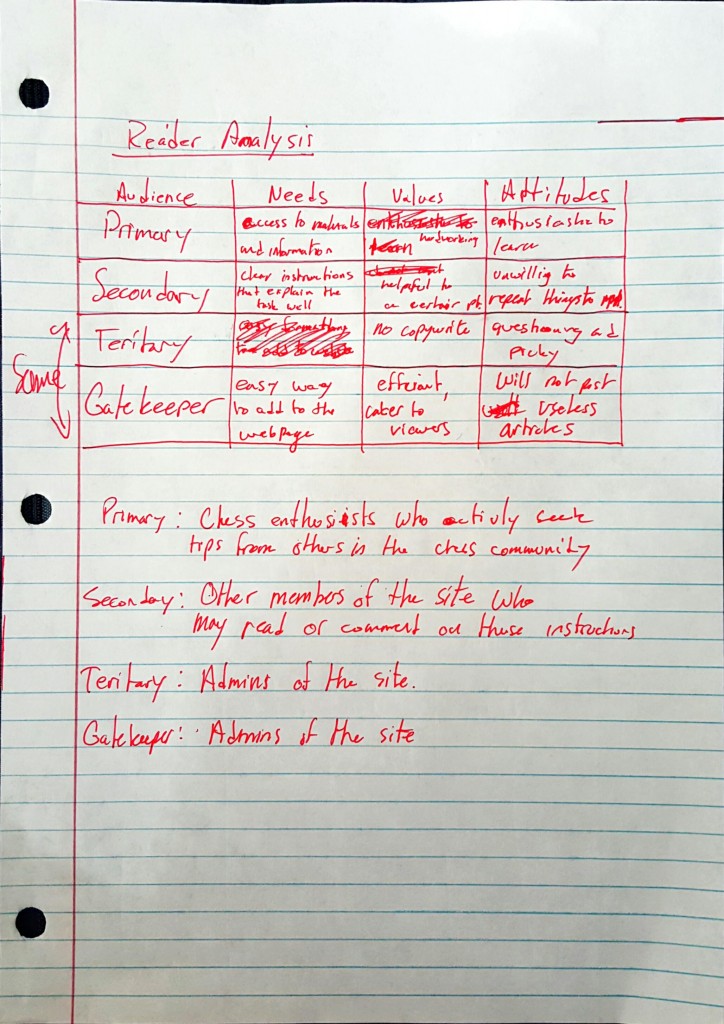 Reader Analysis
Audience Needs Values Attitudes
Primary
access to materials
and information
hardworking
enthusiastic to
learn
Secondary
clear instructions
that explain the
task well
helpful to
a certain pt.
unwilling to
repeat things to
Same
Teritary
no copywrite
questioning and
picky
Gatekeeper
easy way
to add to the
webpage
efficient,
cater to
viewers
Will not post
useless
articles
Primary: Chess enthosiists who activly seek
tips from others in the chess community
Seconday: Other members of the site who
may read or comment on these instructions
Teritary: Admins of the site.
Gatekeeper: Admins of the site